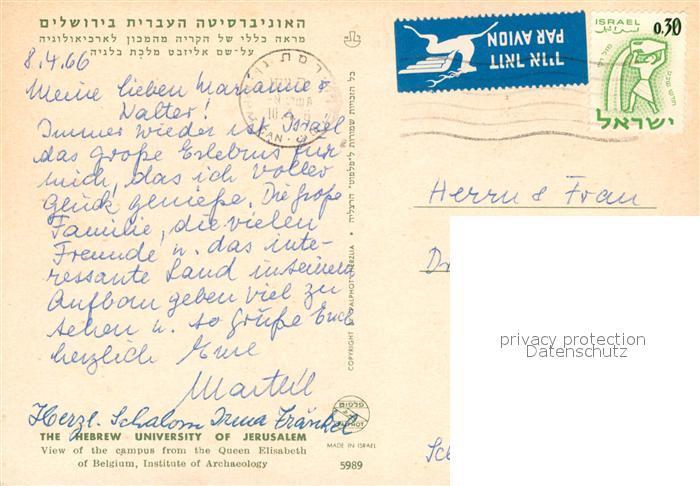 האוניברסיטה העברית בירושלים
מראה כללי של הקריה מהמכון לארכיאולוגיה
על-שם אליזבט מלכת בלגיה
8.4.66
Meine lieben Marianne &
Walter!
Immer wieder ist Israel
das große Erlebnis für
mich, das ich voller
Glück genieße. Die große
Familie, die vielen
Freunde u. das inte-
ressante Land in seinem
Aufbau geben viel zu
sehen u. so grüße Euch
herzlich Eure
Herzl. Schalom Irma Fränkel
THE HEBREW UNIVERSITY OF JERUSALEM
View of the campus from the Queen Elisabeth
of Belgium, Institute of Archaeology
כל הזכויות שמורות ל"פלפוט" הרצליה
COPYRIGHT BY PALPHOT HERZLIA
פלפוט
PALPHOT
MADE IN ISRAEL
5989
PAR AVION
בדואר אויר
ISRAEL
0.30
ישראל
Herrn & Frau
Dr
privacy protection
Datenschutz
Sc